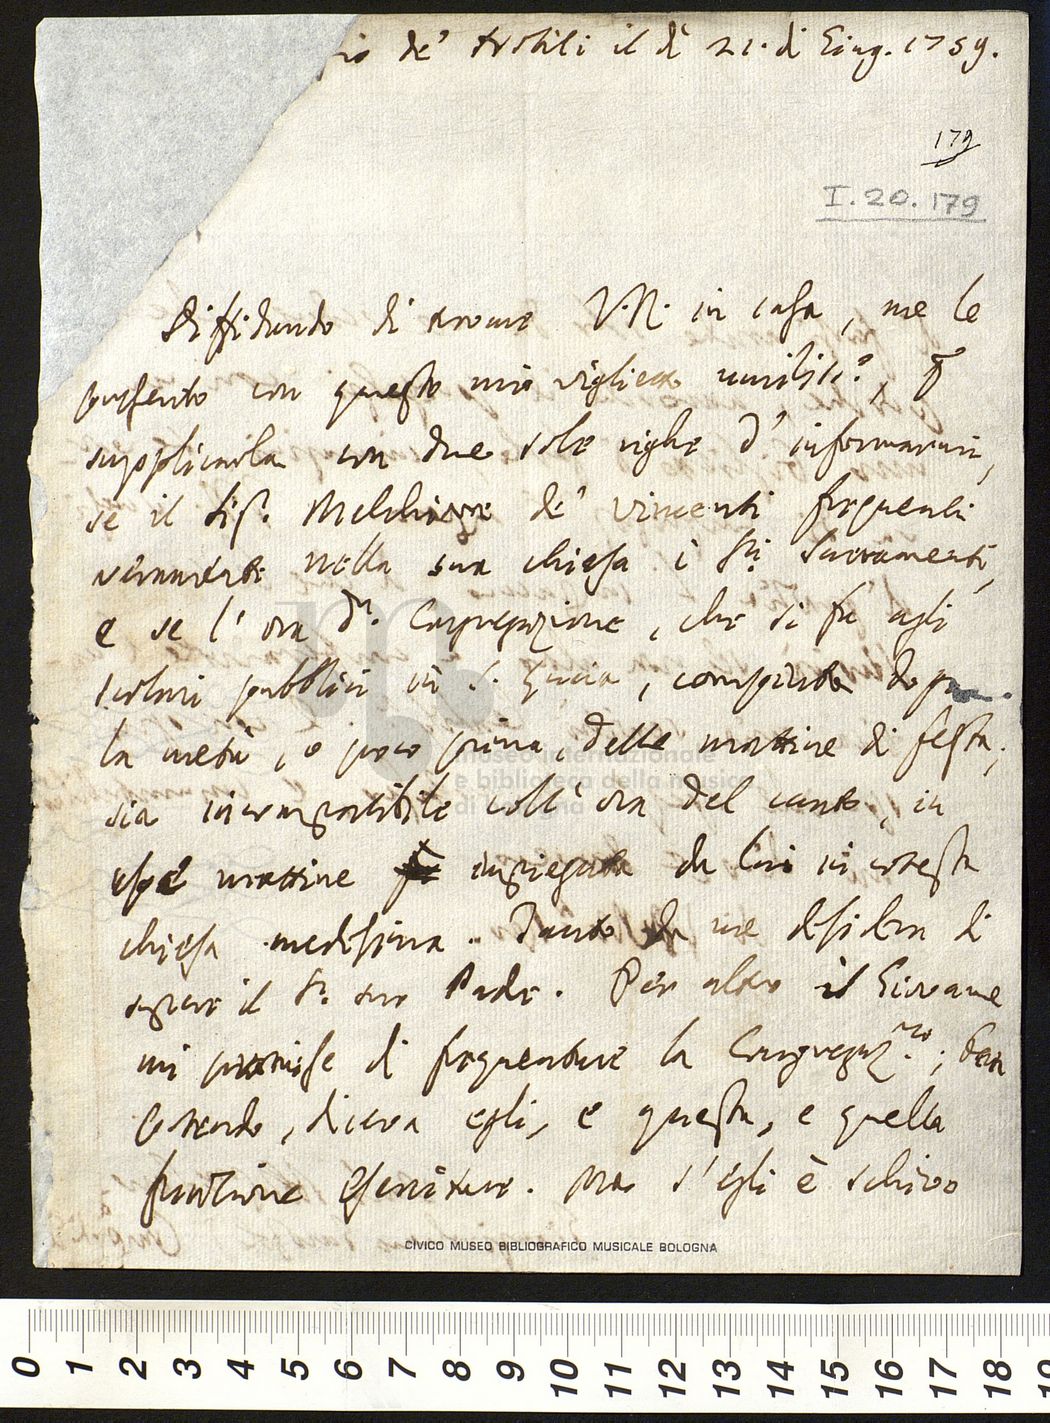 rio de' Nobili il dì 21. di Giug. 1759.
179
I.20.179
Diffidando di trovare V. R. in casa, me le
presento con questo mio viglietto umiliss.º, p
supplicarla con due sole righe d' informarmi,
se il Sig.r Melchiorre de' Vincenti frequenti
veramente nella sua chiesa i SS.i Sacramenti,
e se l' ora d.a Congregazione, che si fa agli
scolari pubblici in S. Lucia, compiuta dopo
la metà, o poco prima, delle mattine di festa,
sia incompatibile coll' ora del canto, in
esse mattine impiegata da lui in cotesta
chiesa medesima. Tanto da me desidera di
sapere il S.r suo Padre. Per altro il Giovane
mi promise di frequentare la Congregaz.ne; ben
potendo, diceva egli, e questa, e quella
funzione esercitare. Ma s' egli è schivo
museo internazionale
e biblioteca della musica
di Bologna
CIVICO MUSEO BIBLIOGRAFICO MUSICALE BOLOGNA
0 1 2 3 4 5 6 7 8 9 10 11 12 13 14 15 16 17 18